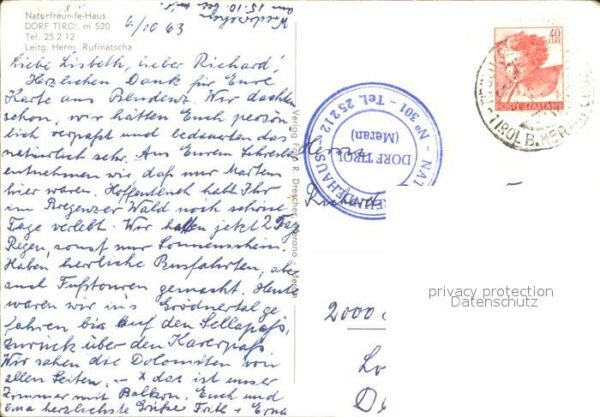 Naturfreunde-Haus
DORF TIROL m 520
Tel. 25 2 12
Leitg. Herm. Rufinatscha
6/10 63
Wiedersehen
am 15.10. bei
Liebe Lisbeth, lieber Richard!
Herzlichen Dank für Eure
Karte aus Bludenz. Wir dachten
schon, wir hätten Euch persön
lich verpaßt und bedauerten das
natürlich sehr. Aus Eurem Schreiben
entnehmen wir, daß nur Martens
hier waren. Hoffentlich habt Ihr
im Bregenzer Wald noch schöne
Tage verlebt. Wir hatten jetzt 2 Tag
Regen, sonst nur Sonnenschein.
Haben herrliche Busfahrten, aber
auch Fußtouren gemacht. Heute
waren wir ins Grödnertal ge
fahren bis auf den Sellapaß,
zurück über den Karerpaß
Wir sahen die Dolomiten von
allen Seiten. – x das ist unser
Zimmer mit Balkon. Euch und
Oma herzlichste Grüße Fritz + Erna
Verlag Foto R. Drescher, Merano
NATURFREUNDEHAUS
Nº 301 - Tel. 25212
DORF TIROL
(Meran)
40
LIRE
POSTE ITALIANE
TIROL B. MER
Herrn
Richard
2000
privacy protection
Datenschutz